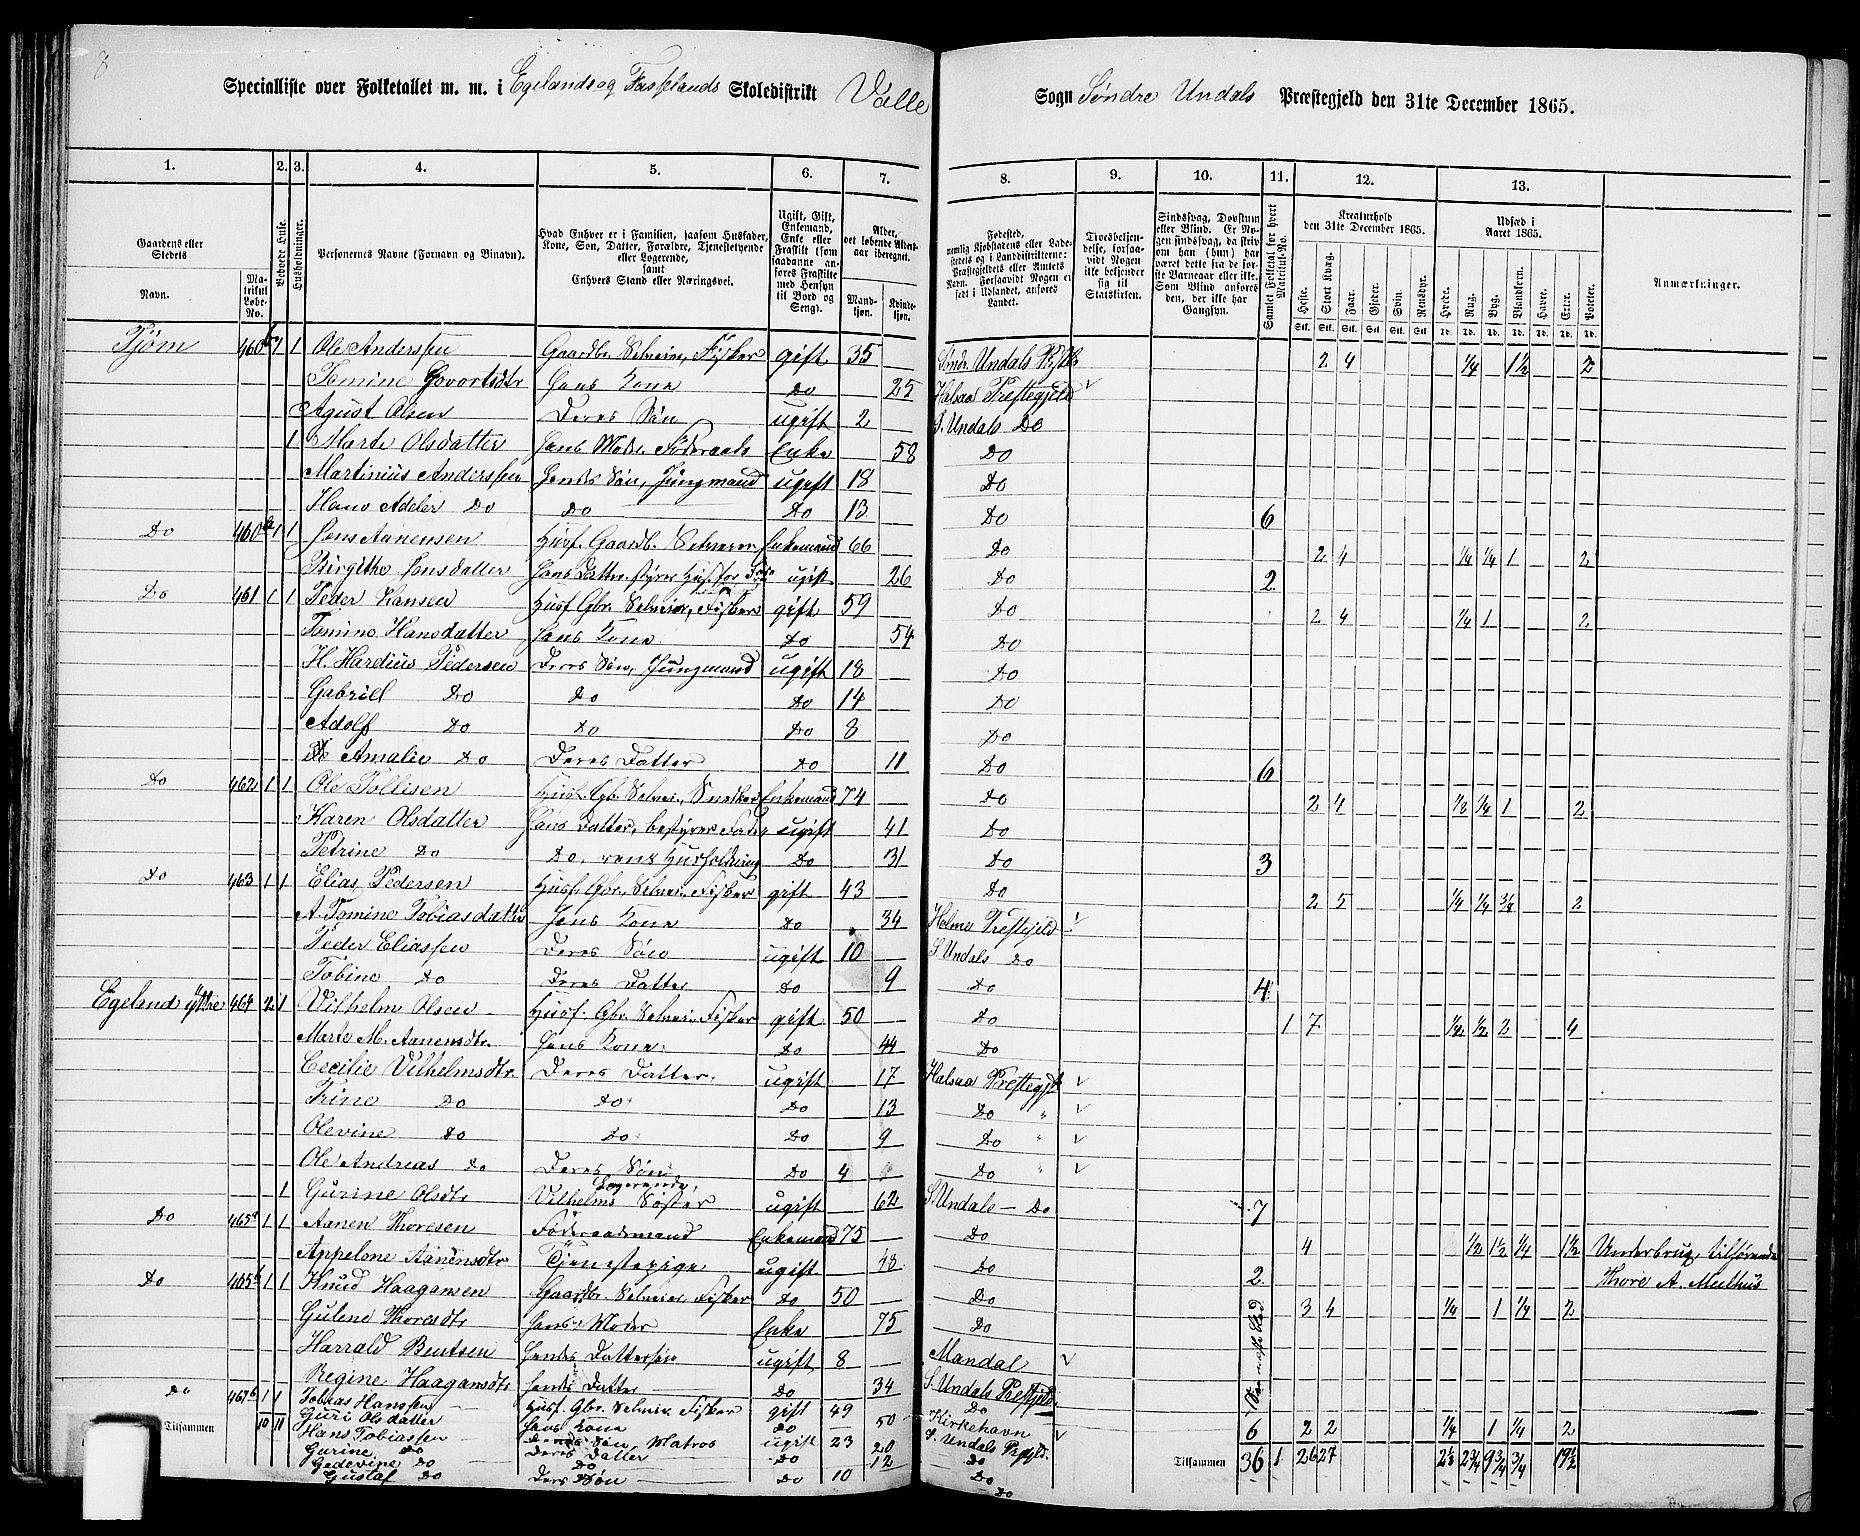 8
Specialliste over Folketallet m. m. i Egelands og Skoledistrikt Valle Sogn Søndre Undals Præstegjeld den 31te December 1865.
1. 2. 3. 4. 5. 6. 7. 8. 9. 10. 11. 12. 13.
Gaardens eller Stedets Navn. Matrikul Løbe-No. Beboede Huse. Husholdninger. Personernes Navne (Fornavn og Binavn). Hvad Enhver er i Familien, saasom Husfader, Kone, Søn, Datter, Forældre, Tjenestetyende eller Logerende, samt Enhvers Stand eller Næringsvei. Ugift, Gift, Enkemand, Enke eller Fraskilt (som saadanne anføres Fraskilte med Hensyn til Bord og Seng). Alder, det løbende Aldersaar iberegnet. Mandkjøn. Kvindekjøn. Fødested, nemlig Kjøbstadens eller Ladestedets og i Landdistrikterne: Præstegjeldets eller Amtets Navn. Forsaavidt Nogen er født i Udlandet, anføres Landet. Troesbekjendelse, forsaavidt Nogen ikke bekjender sig til Statskirken. Sindssvag, Døvstum eller Blind. Er Nogen sindssvag, da skrives om han (hun) har været dette fra de første Barneaar eller ikke. Som Blind anføres den, der ikke har Gangsyn. Samlet Folketal for hvert Matrikul-No. Kreaturhold den 31te December 1865. Heste. Stort Kvæg. Faar. Gjeder. Svin. Rensdyr. Udsæd i Aaret 1865. Hvede. Rug. Byg. Blandkorn. Havre. Erter. Poteter. Anmærkninger.
Tjøm 460b 1 1 Ole Anderssen Gaardbr. Selveier, Fisker gift 35 Søndr. Undals 2 4 1/4 1 1/2 2
Tomine Govertsdtr Hans Kone Do 25 Halsaa Prestegjeld
Agust Olsen Deres Søn ugift 2 S. Undals Do
1 Marte Olsdatter Hans Moder Føderaads Enke 58 Do
Martinius Anderssen Hendes Søn, Jungmand ugift 18 Do
Hans Adeler Do Do Do 13 Do 6
Do 460a 1 1 Jens Aanensen Husf. Gaardb. Selveier Enkemand 66 Do 2 4 1/4 1/4 1 2
Birgithe Jensdatter Hans Datter styrer Hus for Far ugift 26 Do 2
Do 461 1 1 Peder Hansen Husf. Gbr. Selveier, Fisker gift 59 Do 2 4 1/4 1 2
Tomine Hansdatter Hans Kone Do 54 Do
H. Hardius Pedersen Deres Søn, Jungmand ugift 18 Do
Gabriel Do Do Do 14 Do
Adolf Do Do Do 8 Do
Amalie Do Deres Datter Do 11 Do 6
Do 462 1 1 Ole Tollisen Husf. Gbr. Selveier, Snedker Enkemand 74 Do 2 4 1/8 1/4 1 2
Karen Olsdatter Hans Datter, bestyrer Fade- ugift 41 Do
Petrine Do Do, rens Husholdning Do 31 Do 3
Do 463 1 1 Elias Pedersen Husf. Gbr. Selveier, Fisker gift 43 Do 2 5 1/4 1/4 3/4 2
A. Tomine Tobiasdatter Hans Kone Do 34 Holme Prestejeld
Peder Eliassen Deres Søn ugift 10 S. Undals Do
Tobine Do Deres Datter Do 9 Do 4
Egeland yttre 464 2 1 Vilhelm Olsen Husf. Gbr. Selveier, Fisker gift 50 Do 1 7 1/4 1/2 2 4
Marte M. Aanensdtr. Hans Kone Do 44 Do
Cecilie Vilhelmsdtr. Deres Datter ugift 17 Halsaa Prestegjd
Trine Do Do Do 13 Do "
Olevine Do Do Do 9 Do "
Ole Andreas Do Deres Søn Do 4 Do "
1 Gurine Olsdtr Logerende, Vilhelms Søster ugift 62 S. Undals Do 7
Do 465a 1 1 Aanen Thoresen Føderaadsmand Enkemand 75 Do 4 1/2 1 1/2 1/4 1 1/2 Underbrug tilhørende
Appelone Aanensdtr Tjenestepige ugift 48 Do 2 Thore A. Meelhus
Do 465b 1 1 Knud Haagensen Gaardbr. Selveier, Fisker Do 50 Do 3 4 1/4 1 1/4 2
Gulene Thoresdtr Hans Moder Enke 75 Do
Harrald Bentsen Hendes Dattersøn ugift 8 Mandal
Regine Haagansdtr Hendes Datter Do 34 S. Undals Prestejeld
Do 467b 1 1 Tobias Hanssen Husf. Gbr. Selveier, Fisker gift 49 Do 6 2 2 1/4 1 1/4 2
Guri Olsdatter Hans Kone Do 50 Kirkehavn
Hans Tobiassen Deres Søn, Matros ugift 23 S. Undals
Gurine Do Deres Datter Do 20 Do
Gedevine Do Do 12 Do
Gustaf Do Deres Søn Do 10 Do
Tilsammen 10 11 Tilsammen 36 1 26 27 9 3/4 3/4 19 1/2